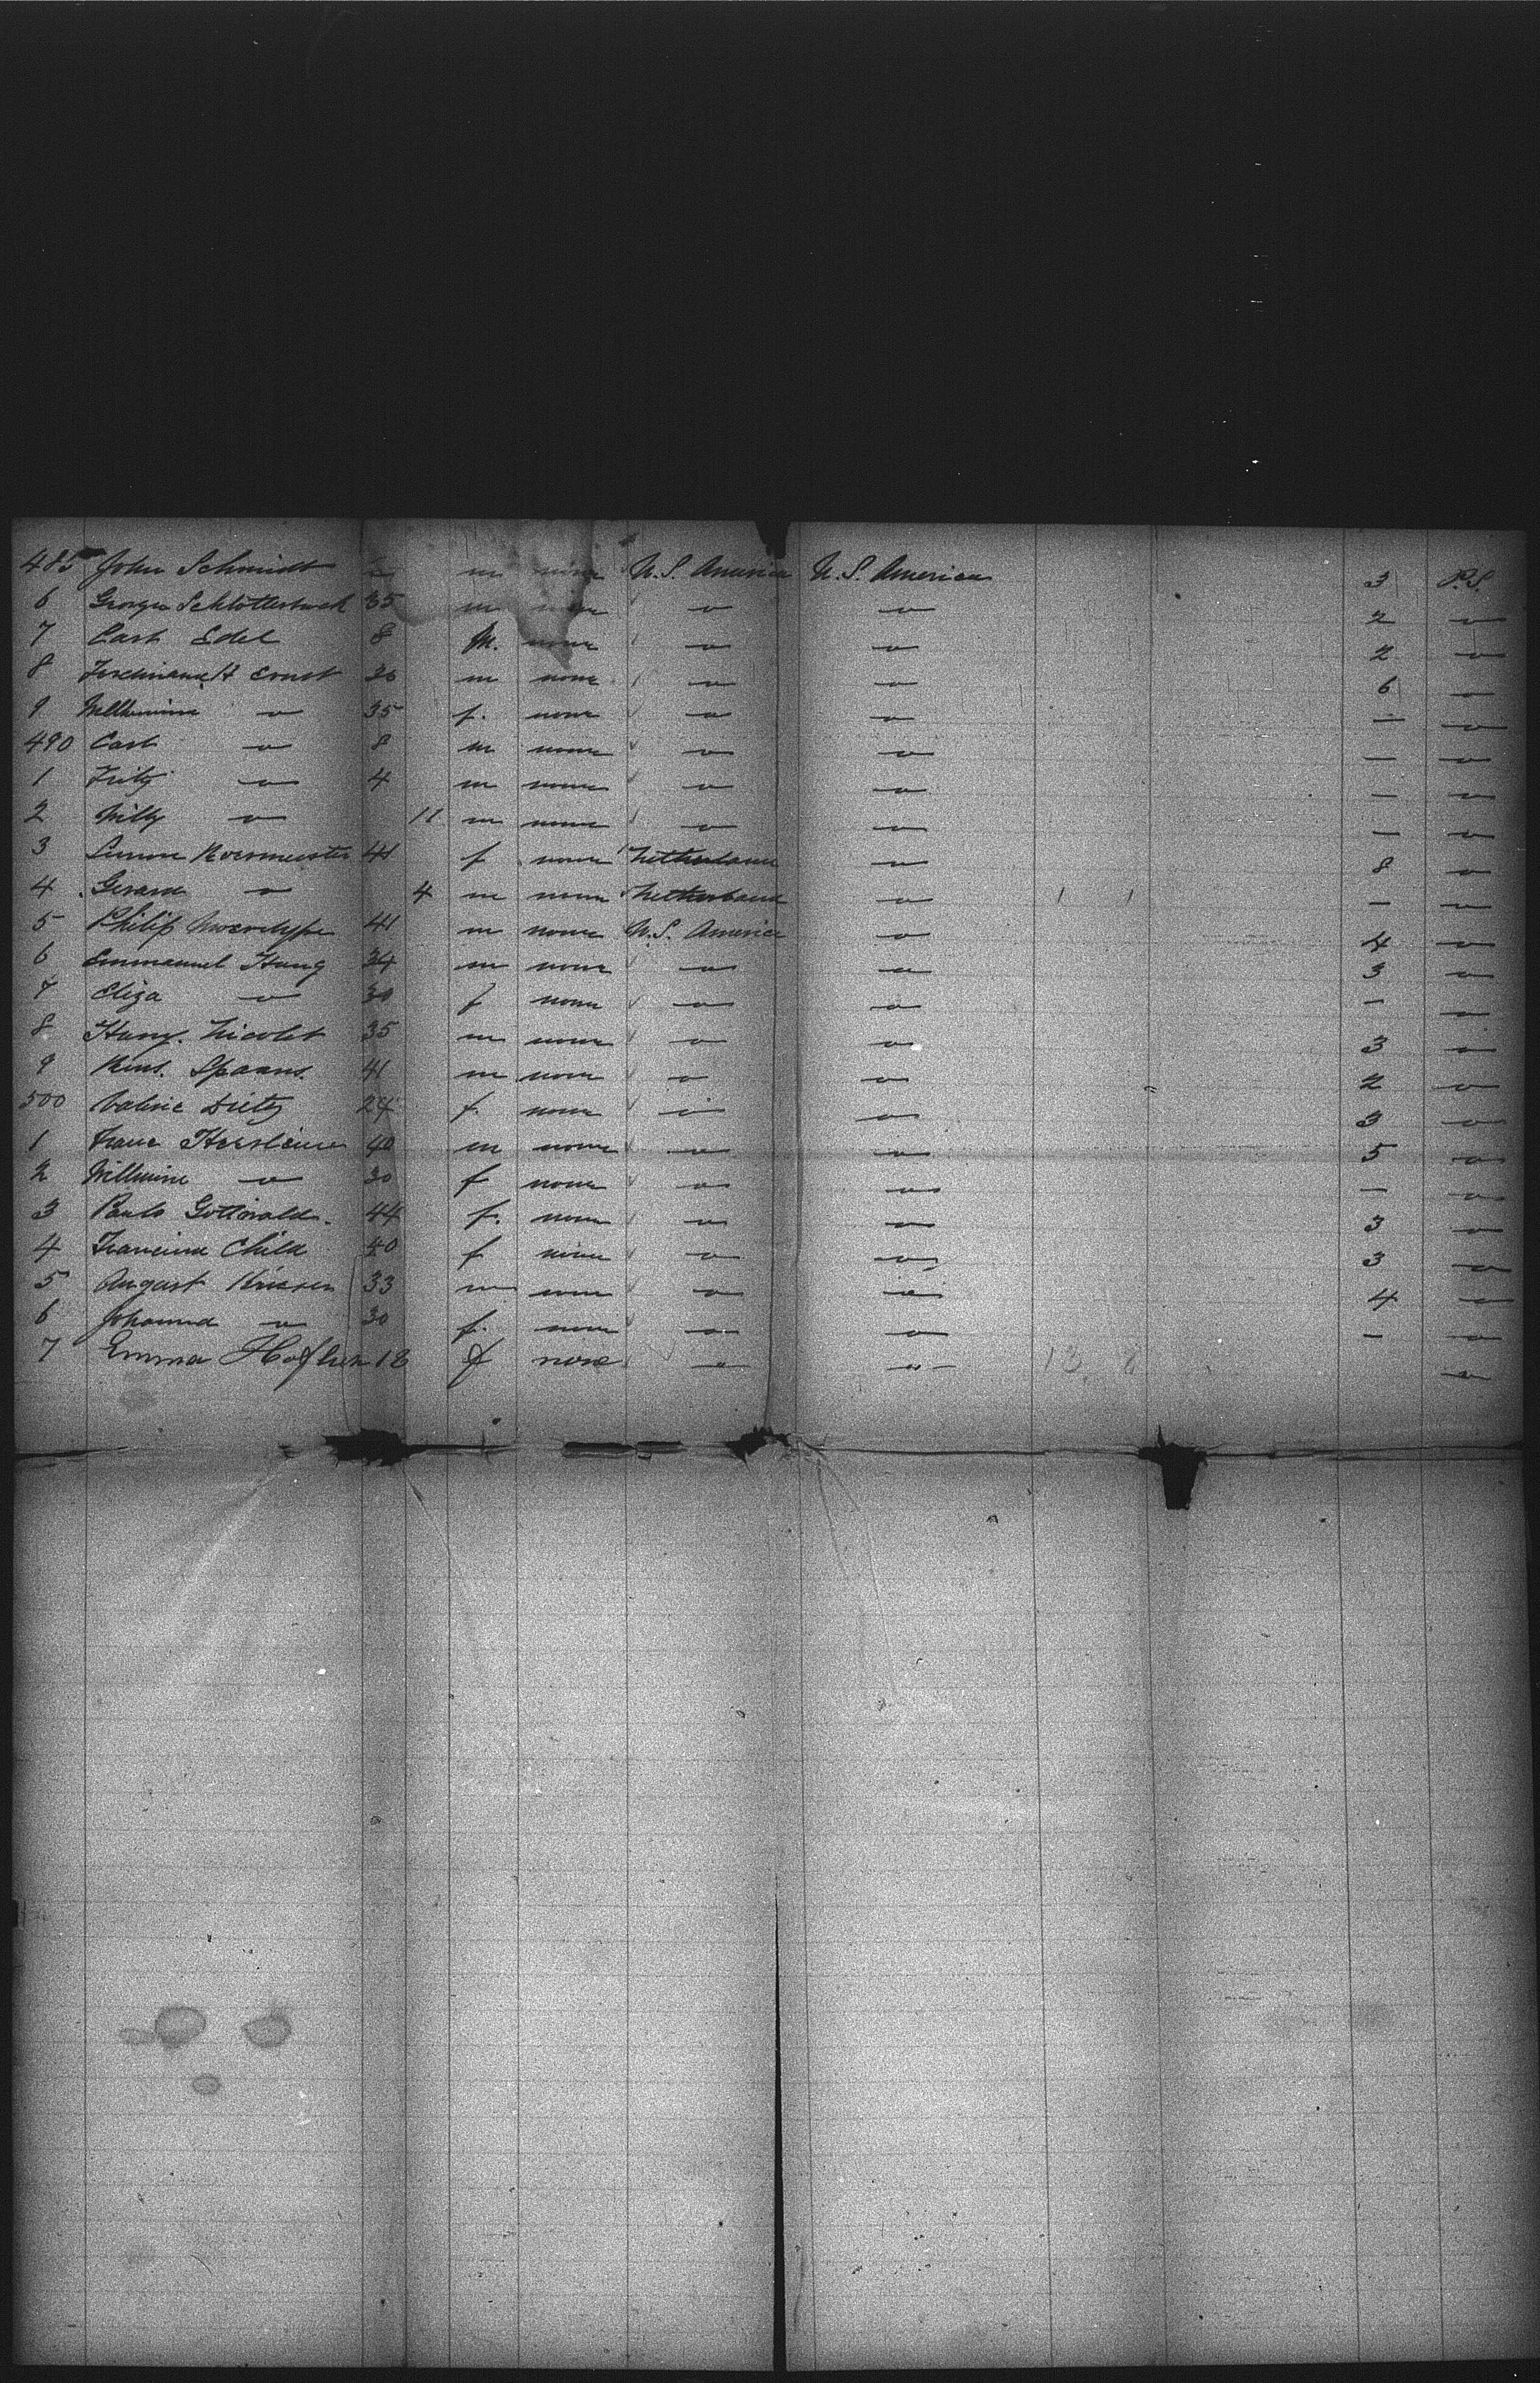 485 John Schmidt m none U.S. America U.S. America 3 P.S.
6 George Schlotterbeck 35 m none " " 2 "
7 Carl Edel 8 M. none " " 2 "
8 Ferdinand Ernst 36 m none " " 6 "
9 " 35 f. none " " — "
490 Carl " 8 m none " " — "
1 Fritz " 4 m none " " — "
2 Willy " 11 m none " " — "
3 41 f none Netherland " 8 "
4 Gerard " 4 m none Netherland " — "
5 Philip 41 m none U.S. America " 4 "
6 Emmanuel Haug 34 m none " " 3 "
7 Eliza " 30 f none " " — "
8 Nicolet 35 m none " " 3 "
9 Spaans. 41 m none " " 2 "
500 Valerie Dietz 24 f. none " " 3 "
1 40 m none " " 5 "
2 " 30 f none " " — "
3 Gottwald. 44 f. none " " 3 "
4 Child 40 f none " " 3 "
5 August 33 m none " " 4 "
6 Johanna " 30 f. none " " — "
7 Emma 18 f none " " "